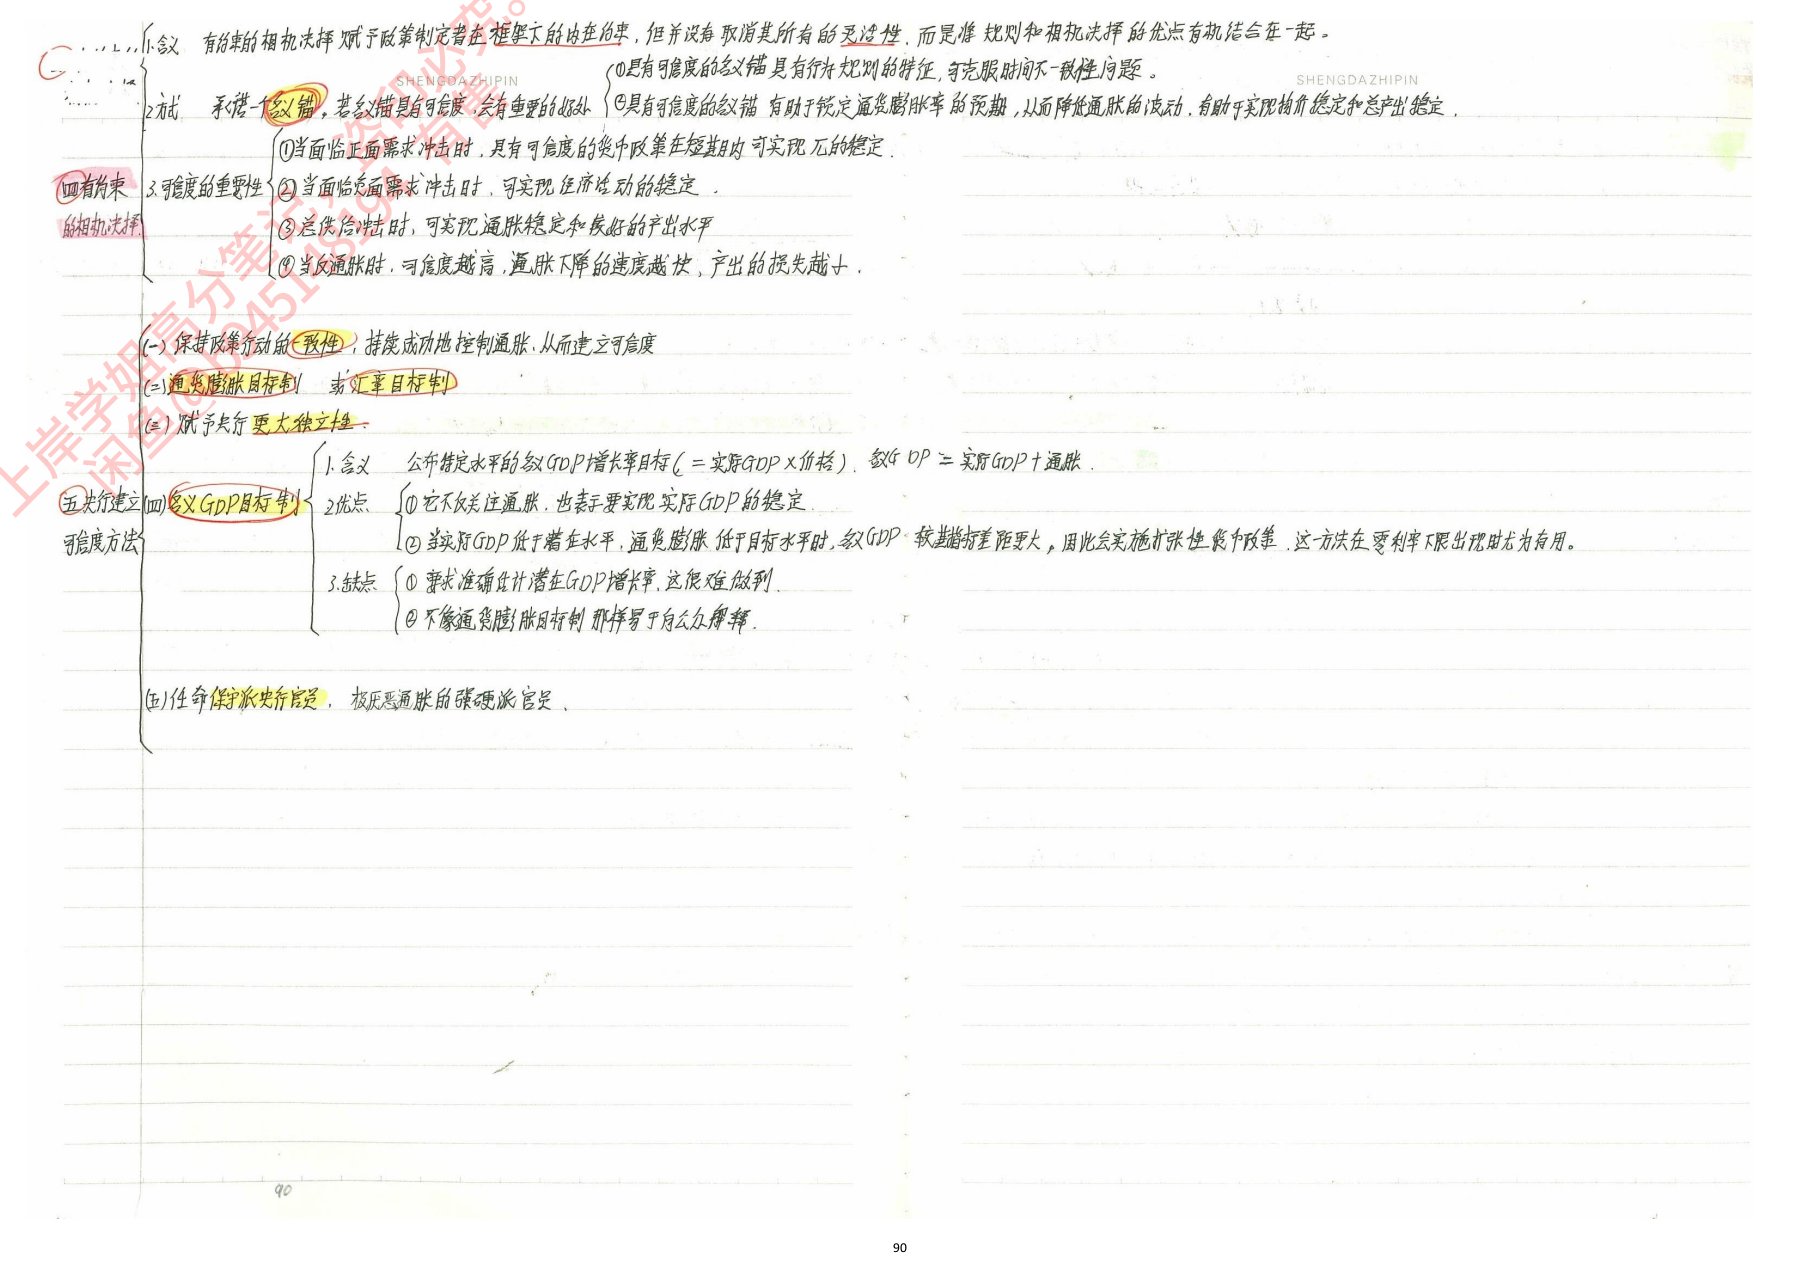 1.含义 有约束的相机决择 赋予政策制定者在框架下的内在约束，但并没有取消其所有的灵活性，而是准 规则和相机决择的优点有机结合在一起。
SHENGDAZHIPIN
SHENGDAZHIPIN
①具有可信度的名义锚 具有行为规则的特征，可克服时间不一致性问题。
2.方式 承诺一个名义锚。若名义锚具有可信度，会有重要的好处
②具有可信度的名义锚 有助于锁定通货膨胀率的预期，从而降低通胀的波动，有助于实现物价稳定和总产出稳定.
①当面临正面需求冲击时，具有可信度的货币政策在短期内可实现 π的稳定.
(四)有约束的相机决择
3.可信度的重要性
②当面临负面需求冲击时，可实现经济活动的稳定.
③总供给冲击时，可实现通胀稳定和良好的产出水平
④当反通胀时，可信度越高，通胀下降的速度越快，产出的损失越小.
(一) 保持政策行动的一致性，持续成功地控制通胀、从而建立可信度
(二) 通货膨胀目标制 或 汇率目标制
(三) 赋予央行更大独立性.
(五)央行建立可信度方法
(四) 名义GDP目标制
1.含义 公布特定水平的名义GDP增长率目标(=实际GDP×价格). 名义GDP=实际GDP+通胀.
2.优点 ①它不仅关注通胀，也表示要实现实际GDP的稳定.
②当实际GDP低于潜在水平，通货膨胀低于目标水平时，名义GDP 较其目标差距更大，因此会实施扩张性货币政策，这一方法在零利率下限出现时尤为有用。
3.缺点 ①要求准确估计潜在GDP增长率，这很难做到.
②不像通货膨胀目标制那样易于向公众解释.
(五) 任命保守派央行官员， 极厌恶通胀的强硬派官员.
上岸学姐高分笔记，盗印必究。
90
90